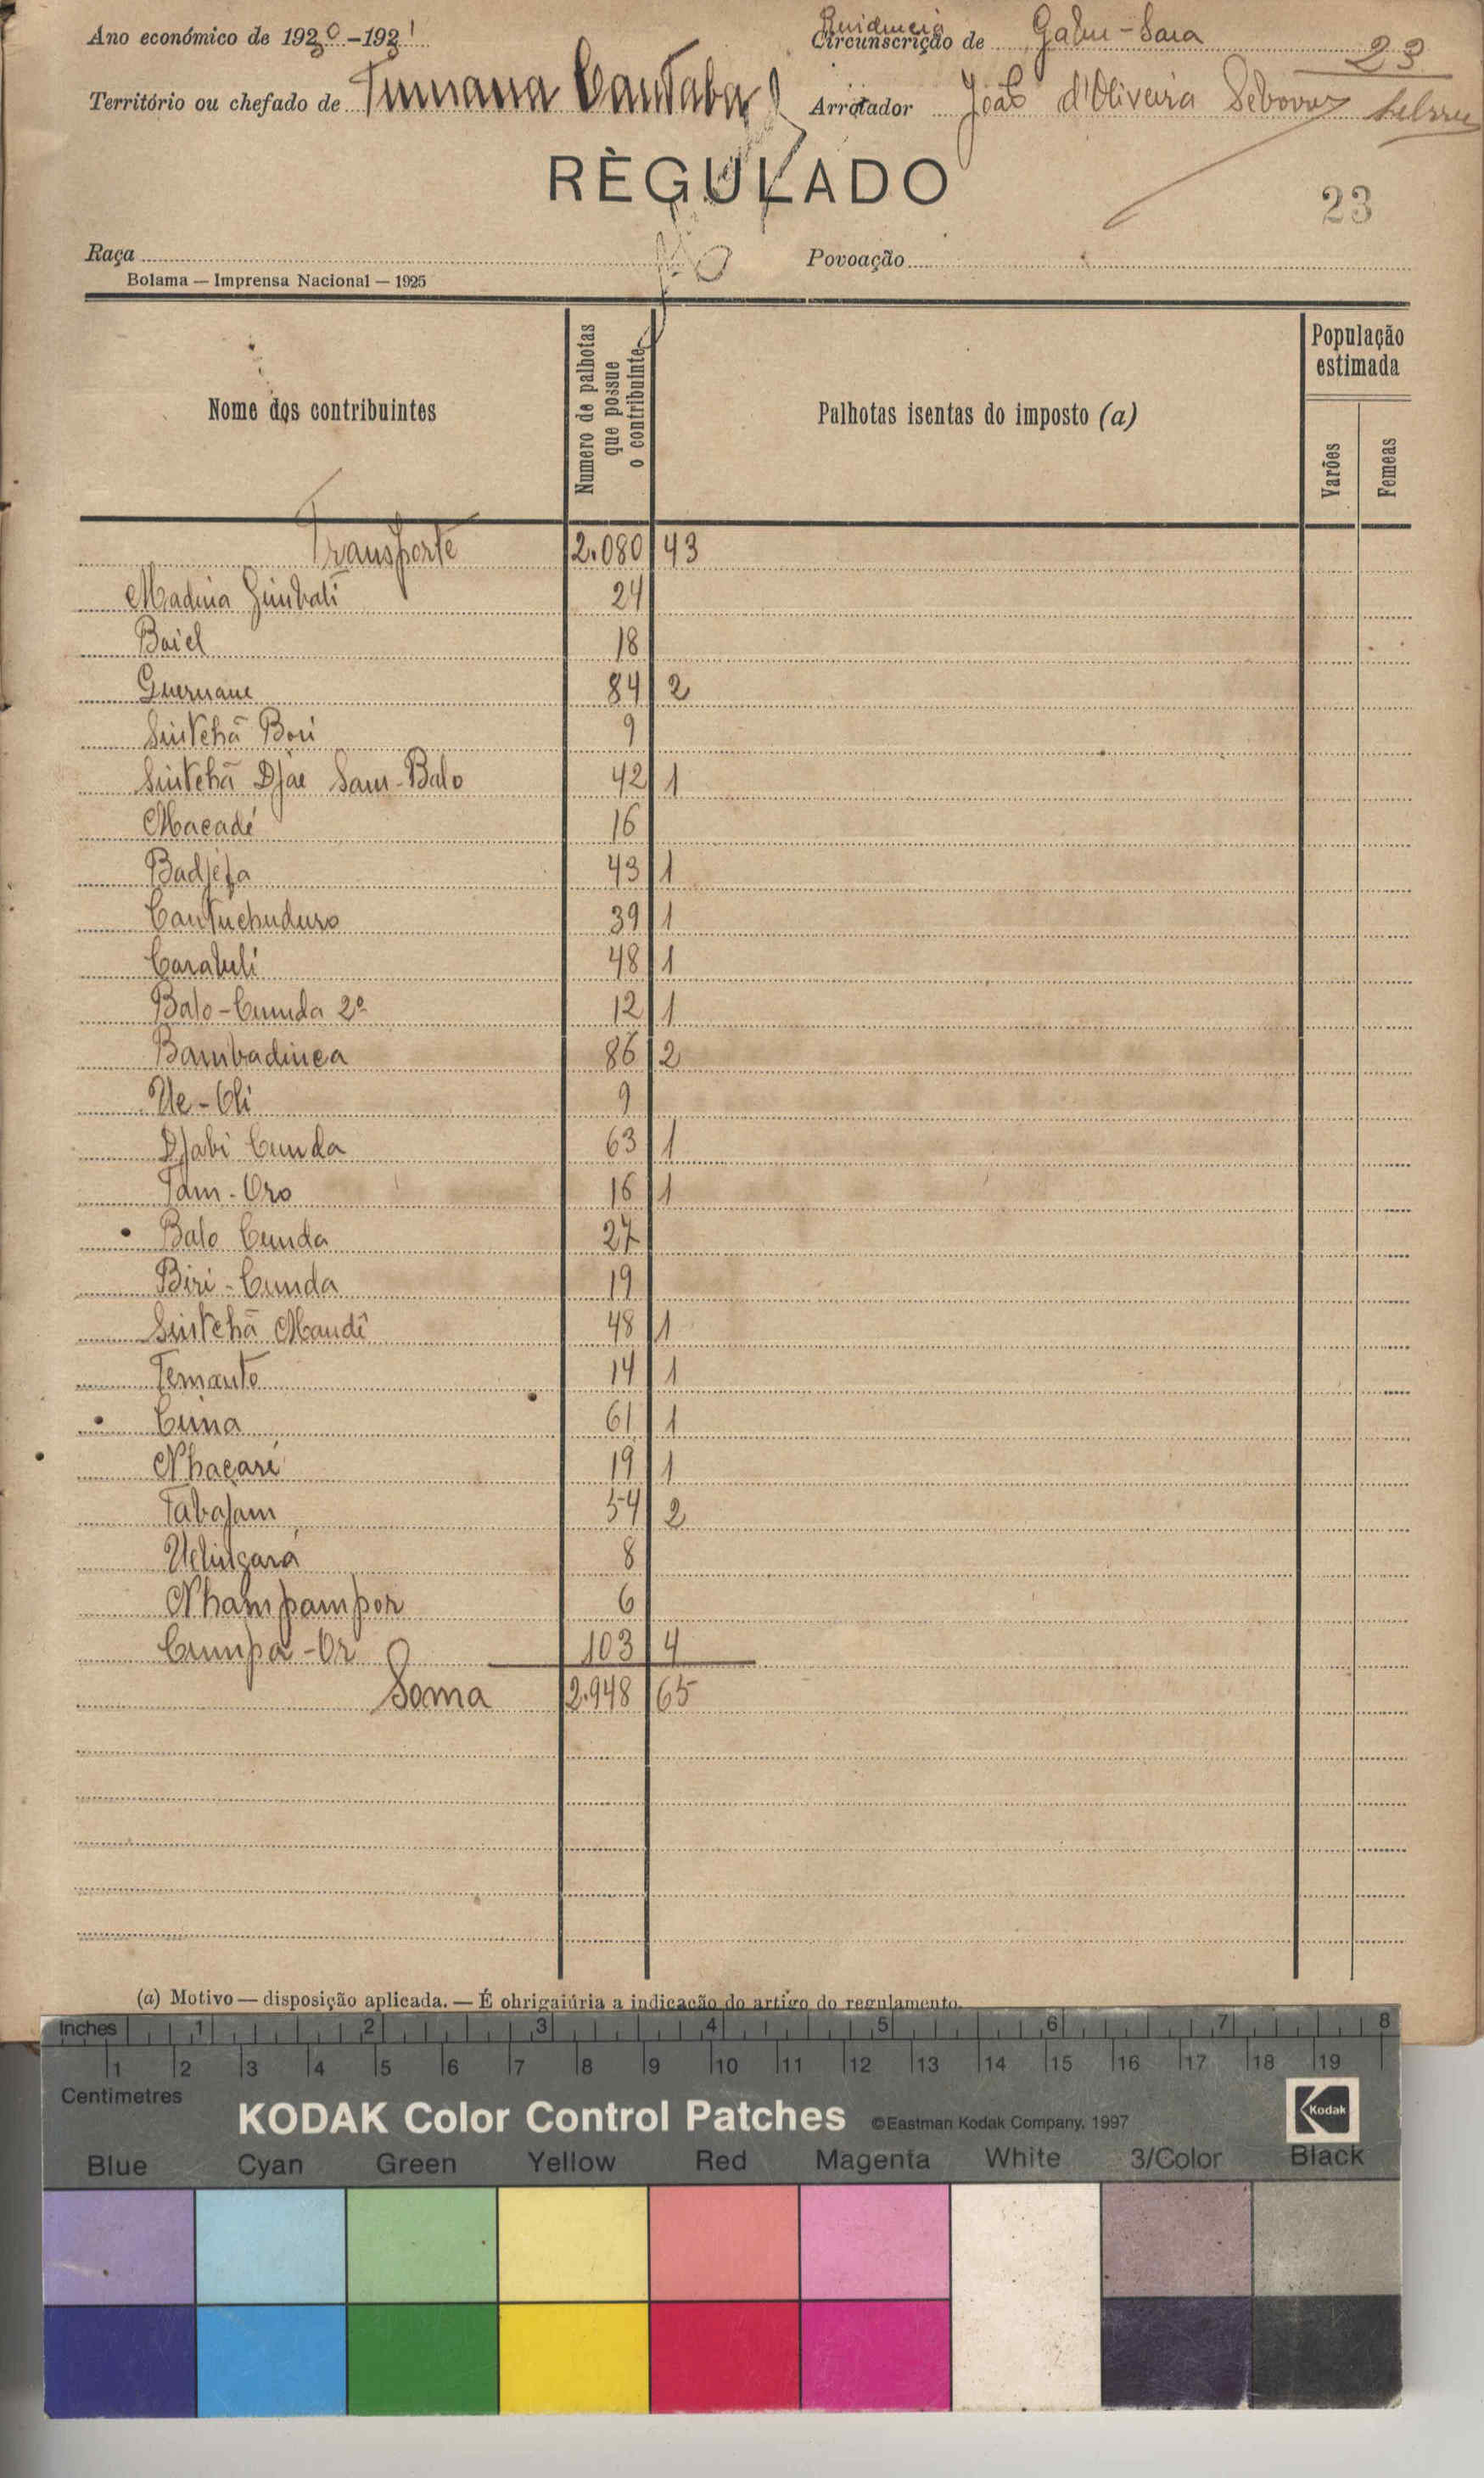 Ano económico de 1930-1931
Residencia
Circunscrição de Gabu-Sara
23
Território ou chefado de Tumana Cantaba
Arrolador João d'Oliveira
RÈGULADO
23
Raça
Povoação
Bolama — Imprensa Nacional — 1925
Nome dos contribuintes
Numero de palhotas que possue o contribuinte
Palhotas isentas do imposto (a)
População estimada
Varões
Femeas
Transporte 2.080 43
Madina Guibali 24
Boiel 18
Guernane 84 2
Sintchã Bori 9
Sintchã Djae Sam-Balo 42 1
Macadé 16
Badjéja 43 1
Cantuchuduro 39 1
Caratuli 48 1
Balo-Cunda 2º 12 1
Bambadinca 86 2
Ue-Oli 9
Djabi Cunda 63 1
Tam-Oro 16 1
Balo Cunda 27
Biri-Cunda 19
Sintchã Mandê 48 1
Temanto 14 1
Cuna 61 1
Nhacaré 19 1
Tabajam 54 2
Uelingará 8
Nhampampor 6
Cumpa-Or 103 4
Soma 2.948 65
(a) Motivo — disposição aplicada. — É obrigaiúria a indicação do artigo do regulamento.
Inches 1 2 3 4 5 6 7 8
1 2 3 4 5 6 7 8 9 10 11 12 13 14 15 16 17 18 19
Centimetres
KODAK Color Control Patches ©Eastman Kodak Company, 1997 Kodak
Blue Cyan Green Yellow Red Magenta White 3/Color Black